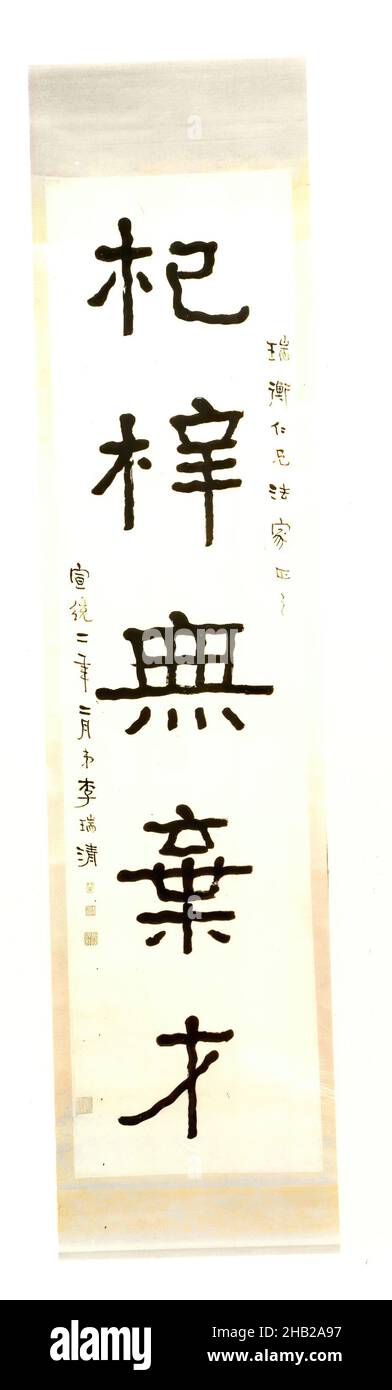 瑞衡仁兄法家正之
杞梓無棄才
宣統二年二月弟李瑞清
alamy
Image ID: 2HB2A97
www.alamy.com